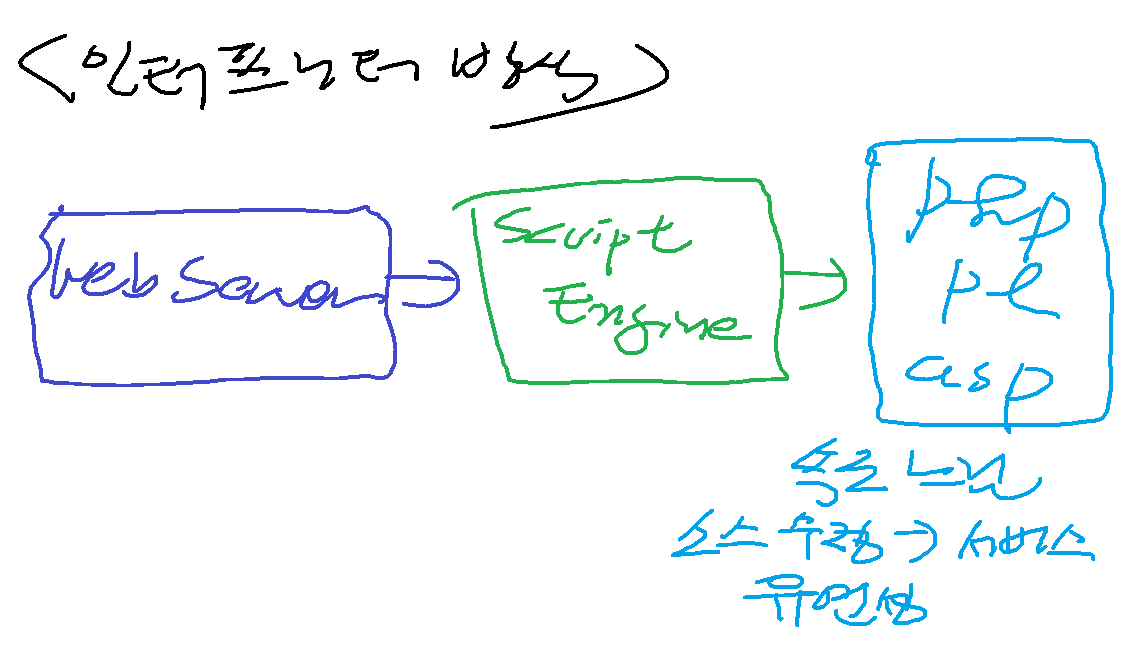 <인터프리터 방식>
Web Server
Script
Engine
php
pl
asp
속도 느림
소스 수정 → 서비스
유연성